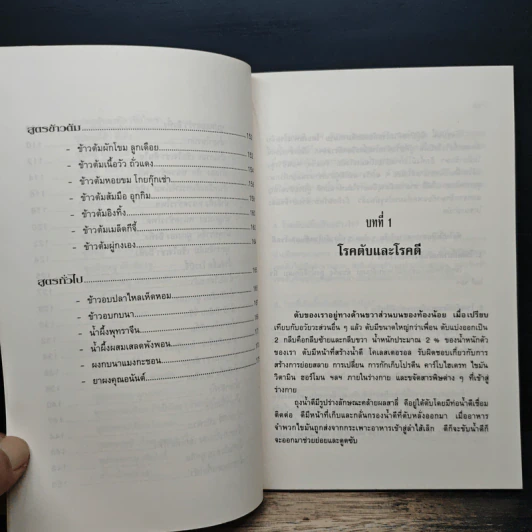 สูตรข้าวต้ม
- ข้าวต้มผักโขม ลูกเดือย
- ข้าวต้มเนื้อวัว ถั่วแดง
- ข้าวต้มหอยขม โกยกุ๊กเช่า
- ข้าวต้มส้มมือ อุกกิม
- ข้าวต้มอิงทิ้ง
- ข้าวต้มเมล็ดกีจี้
- ข้าวต้มผู่กงเอง
สูตรทั่วไป
- ข้าวอบปลาไหลเห็ดหอม
- ข้าวอบกบนา
- น้ำผึ้งพุทราจีน
- น้ำผึ้งผสมเสลดพังพอน
- ผงกบนาแมงกะชอน
- ยาผงคูณอนันต์
บทที่ 1
โรคตับและโรคดี
ตับของเราอยู่ทางด้านขวาส่วนบนของท้องน้อย เมื่อเปรียบ
เทียบกับอวัยวะส่วนอื่น ๆ แล้ว ตับมีขนาดใหญ่กว่าเพื่อน ตับแบ่งออกเป็น
2 กลีบคือกลีบซ้ายและกลีบขวา น้ำหนักประมาณ 2 % ของน้ำหนักตัว
ของเรา ตับมีหน้าที่สร้างน้ำดี โคเลสเตอรอล รับผิดชอบเกี่ยวกับการ
สร้างการย่อยสลาย การเปลี่ยน การกักเก็บโปรตีน คาร์โบไฮเดรท ไขมัน
วิตามิน ฮอร์โมน ฯลฯ ภายในร่างกาย และขจัดสารพิษต่าง ๆ ที่เข้าสู่
ร่างกาย
ถุงน้ำดีมีรูปร่างลักษณะคล้ายผลสาลี่ ดีอยู่ใต้ตับโดยมีท่อน้ำดีเชื่อม
ติดต่อ ดีมีหน้าที่เก็บและกลั่นกรองน้ำดีที่ตับหลั่งออกมา เมื่ออาหาร
จำพวกไขมันถูกส่งจากกระเพาะอาหารเข้าสู่ลำไส้เล็ก ดีก็จะขับน้ำดีก็
จะออกมาช่วยย่อยและดูดซับ